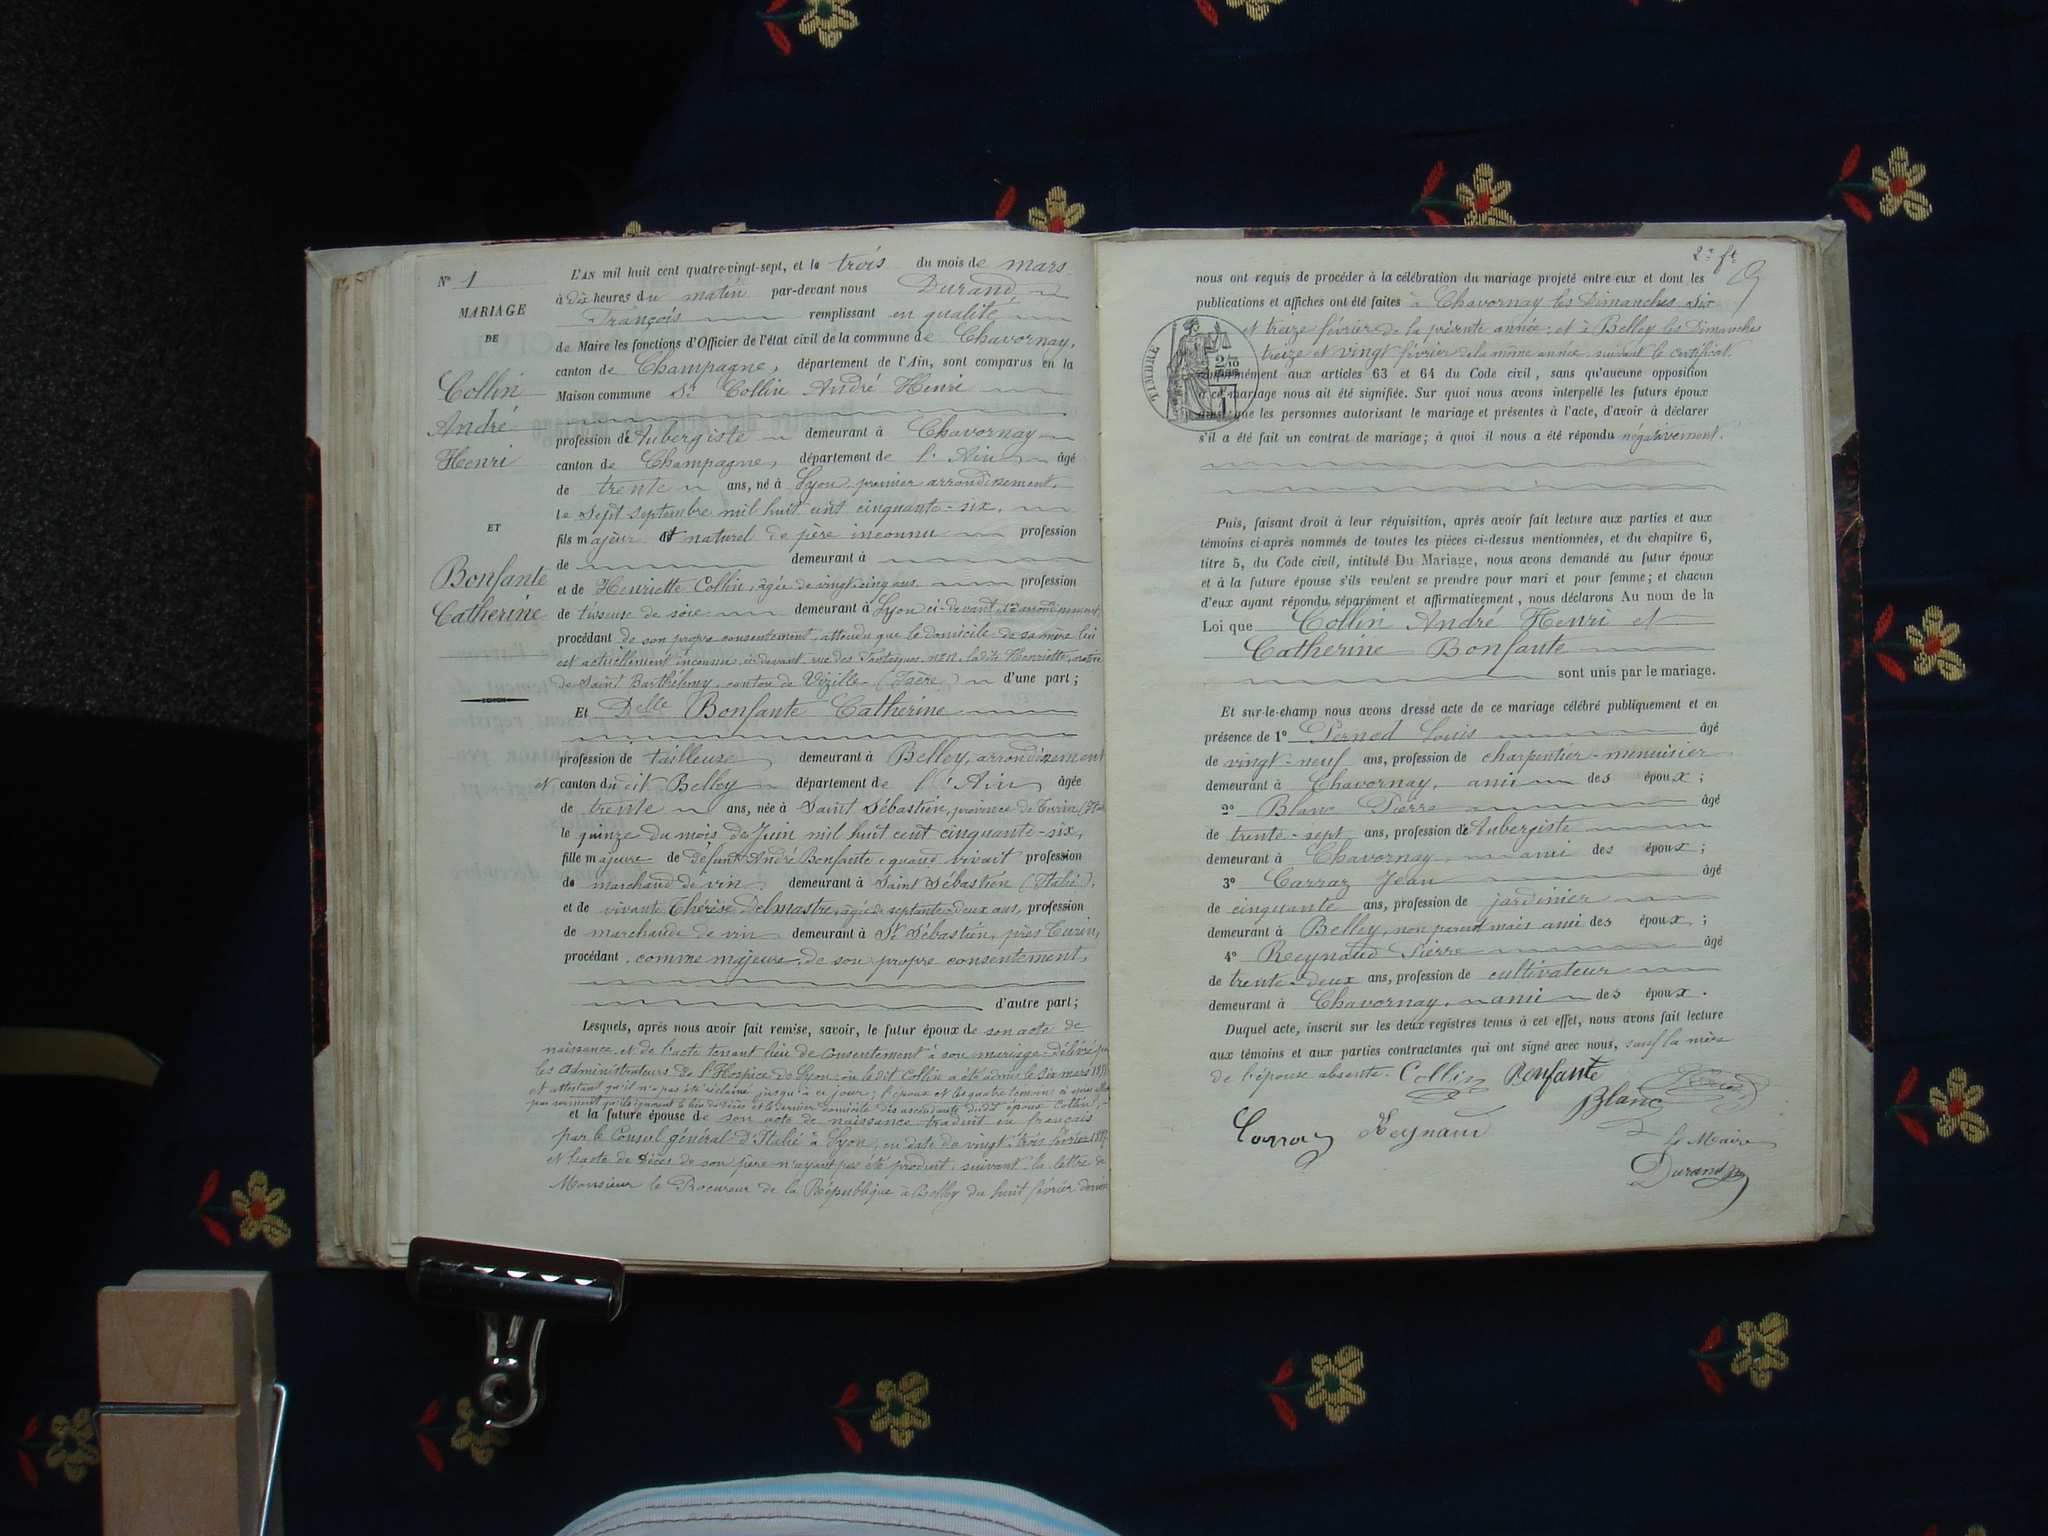 Nº 1
MARIAGE
DE
Collin
André
Henri
ET
Bonfante
Catherine
L'AN mil huit cent quatre-vingt-sept, et le trois du mois de mars
à dix heures du matin par-devant nous Durand
François remplissant en qualité
de Maire les fonctions d'Officier de l'état civil de la commune de Chavornay,
canton de Champagne, département de l'Ain, sont comparus en la
Maison commune Sr Collin André Henri
profession de Aubergiste demeurant à Chavornay
canton de Champagne, département de l'Ain âgé
de trente ans, né à Lyon, premier arrondissement,
le sept septembre mil huit cent cinquante-six,
fils majeur et naturel de père inconnu profession
de demeurant à
et de Henriette Collin, âgée de vingt-cinq ans, profession
de tisseuse de soie demeurant à Lyon ci-devant 1er arrondissement,
procédant de son propre consentement, attendu que le domicile de sa mère lui
est actuellement inconnu, ci-devant rue des la dite Henriette, native
de Saint Barthélemy, canton de Vizille (Isère) d'une part;
Et Delle Bonfante Catherine
profession de tailleuse demeurant à Belley, arrondissement
et canton du dit Belley département de l'Ain âgée
de trente ans, née à Saint Sébastien, province de Turin
le quinze du mois de Juin mil huit cent cinquante-six,
fille majeure de défunt André Bonfante, quand vivait profession
de marchand de vin demeurant à Saint Sébastien (Italie),
et de vivante Thérèse Delmastre, âgée de septante-deux ans, profession
de marchande de vin demeurant à St Sébastien, près Turin,
procédant comme majeure, de son propre consentement,
d'autre part;
Lesquels, après nous avoir fait remise, savoir, le futur époux de son acte de
naissance et de l'acte tenant lieu de consentement à son mariage délivré par
les administrateurs de l'Hospice de Lyon, où le dit Collin a été admis le six mars
et attestant qu'il n'a pas été réclamé jusqu'à ce jour; l'époux et les quatre témoins
par serment qu'ils ignorent le lieu du décès et le dernier domicile des ascendants du dit époux Collin;
et la future épouse de son acte de naissance traduit en français
par le Consul général d'Italie à Lyon, en date de vingt-trois février 1887,
et l'acte de décès de son père n'ayant pas été produit, suivant la lettre de
Monsieur le Procureur de la République à Belley du huit février dernier
2e ft
nous ont requis de procéder à la célébration du mariage projeté entre eux et dont les
publications et affiches ont été faites à Chavornay les Dimanches six
et treize février de la présente année; et à Belley les Dimanches
treize et vingt février de la même année, suivant le certificat.
TIMBRE
conformément aux articles 63 et 64 du Code civil, sans qu'aucune opposition
à ce mariage nous ait été signifiée. Sur quoi nous avons interpellé les futurs époux
ainsi que les personnes autorisant le mariage et présentes à l'acte, d'avoir à déclarer
s'il a été fait un contrat de mariage; à quoi il nous a été répondu négativement.
Puis, faisant droit à leur réquisition, après avoir fait lecture aux parties et aux
témoins ci-après nommés de toutes les pièces ci-dessus mentionnées, et du chapitre 6,
titre 5, du Code civil, intitulé Du Mariage, nous avons demandé au futur époux
et à la future épouse s'ils veulent se prendre pour mari et pour femme; et chacun
d'eux ayant répondu séparément et affirmativement, nous déclarons Au nom de la
Loi que Collin André Henri et
Catherine Bonfante
sont unis par le mariage.
Et sur-le-champ nous avons dressé acte de ce mariage célébré publiquement et en
présence de 1º Pernod Louis âgé
de vingt-neuf ans, profession de charpentier-menuisier
demeurant à Chavornay, ami des époux;
2º Blanc Pierre âgé
de trente-sept ans, profession de Aubergiste
demeurant à Chavornay, ami des époux;
3º Carraz Jean âgé
de cinquante ans, profession de jardinier
demeurant à Belley, non parent mais ami des époux;
4º Reynaud Pierre âgé
de trente-deux ans, profession de cultivateur
demeurant à Chavornay, ami des époux.
Duquel acte, inscrit sur les deux registres tenus à cet effet, nous avons fait lecture
aux témoins et aux parties contractantes qui ont signé avec nous, sauf la mère
de l'épouse absente. Collin Bonfante
Blanc
Carraz Reynaud
Le Maire
Durand